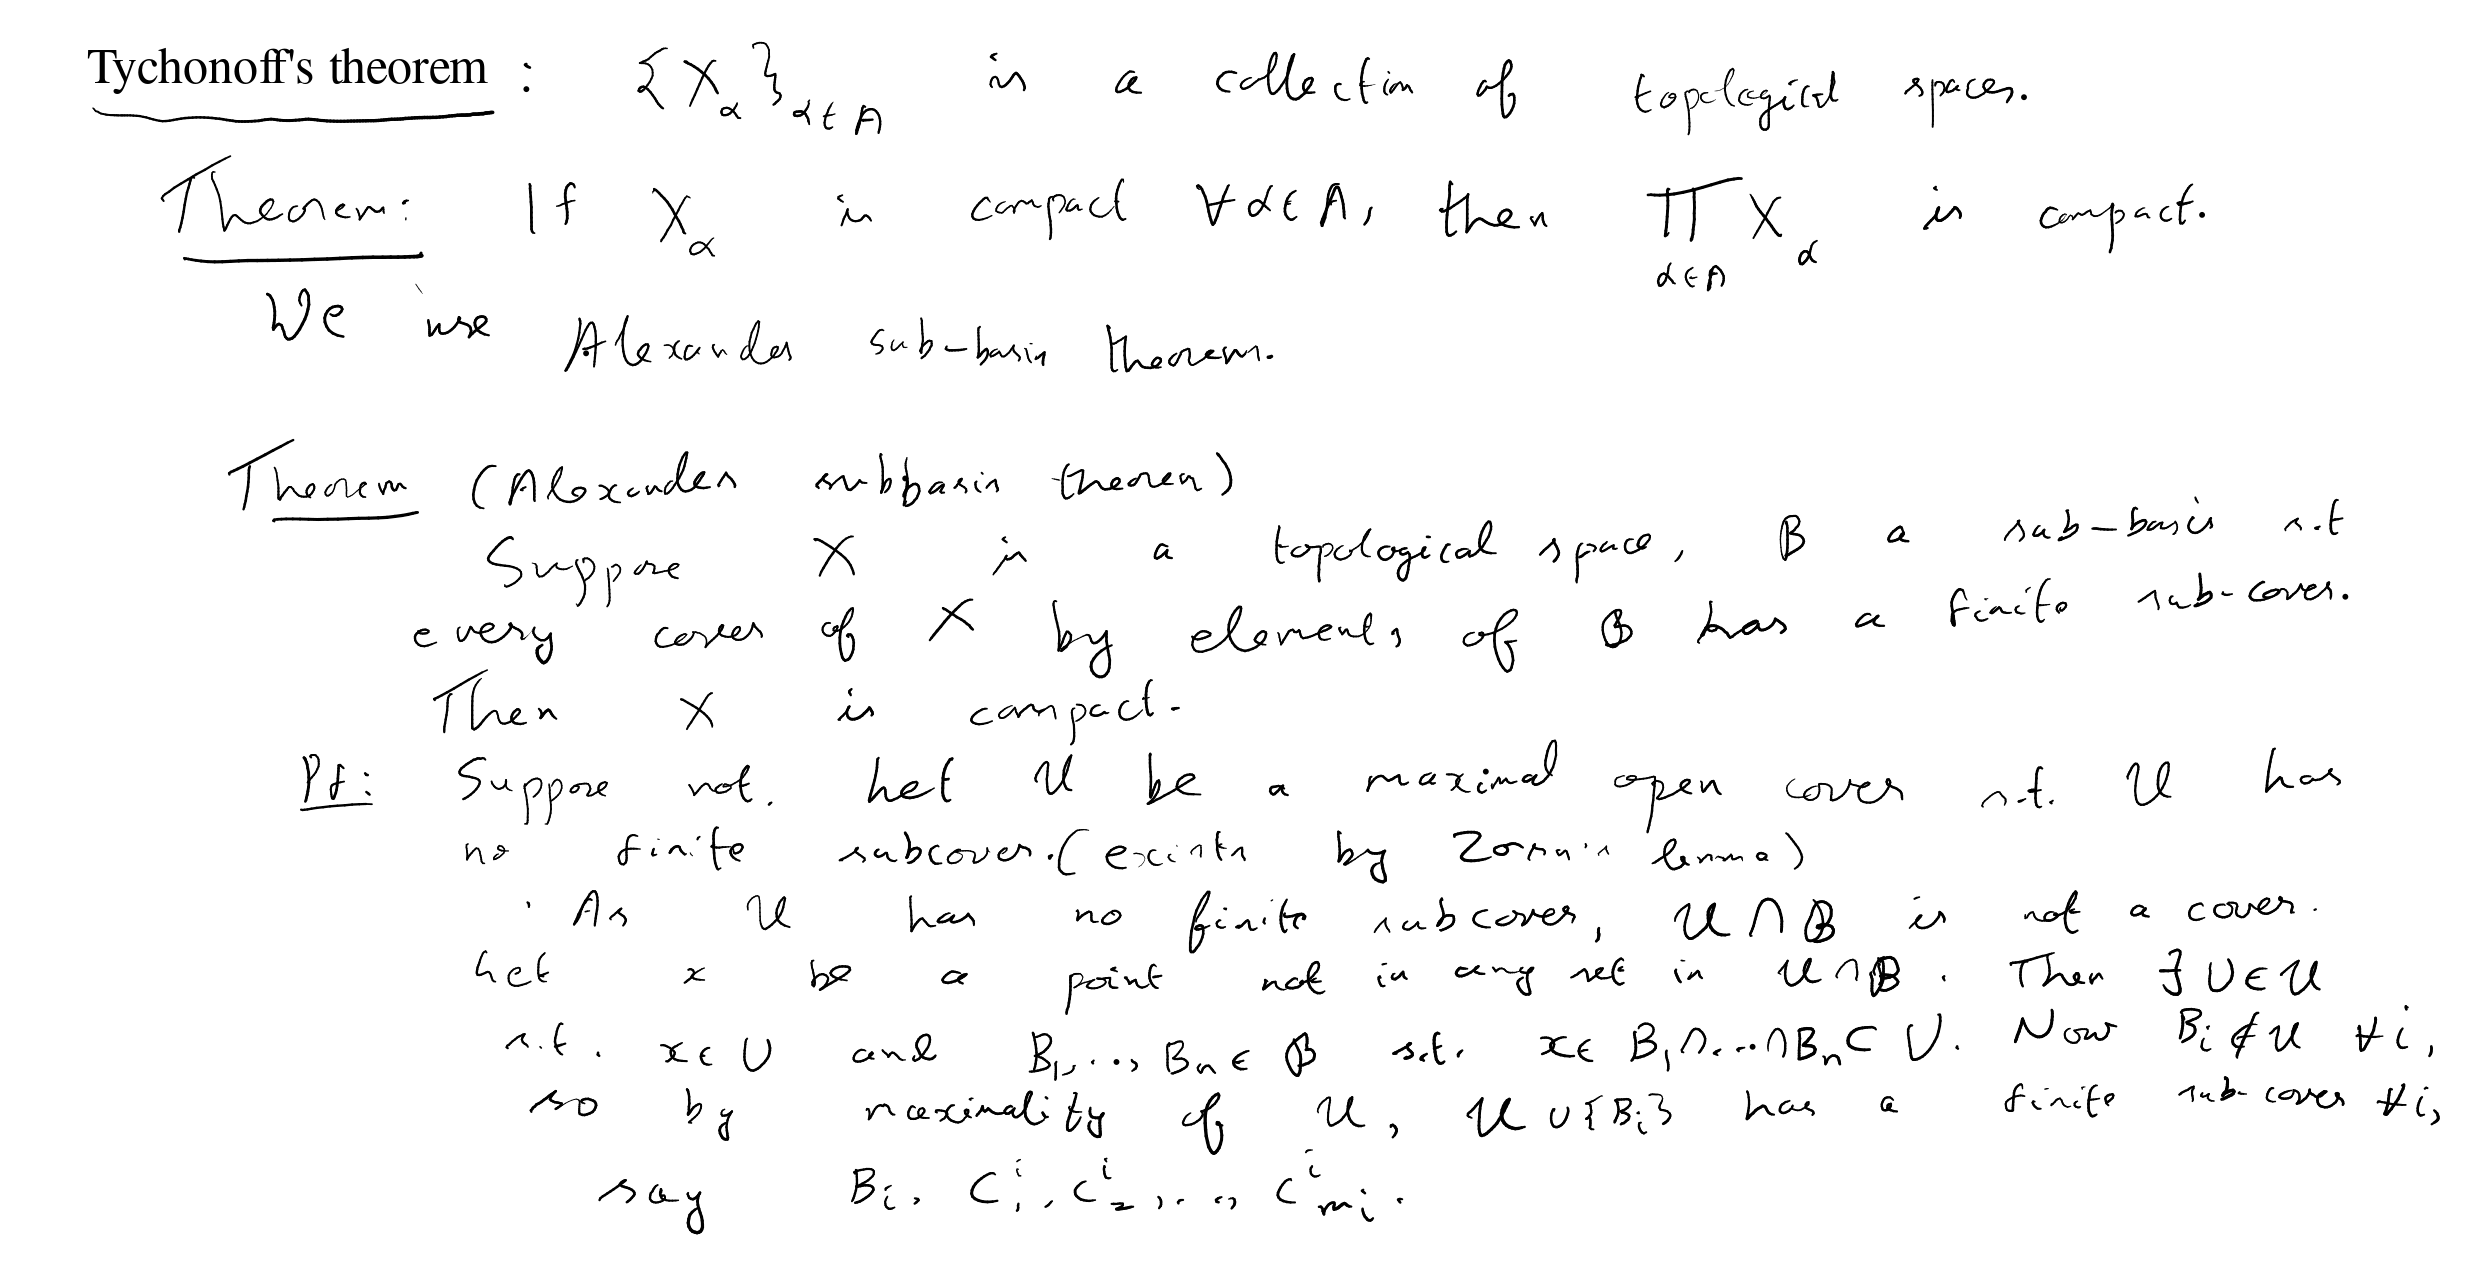 Tychonoff's theorem : {X_α}_{α∈A} is a collection of topological spaces.
Theorem: If X_α is compact ∀α∈A, then ∏_{α∈A} X_α is compact.
We use Alexander sub-basis theorem.
Theorem (Alexander subbasis theorem)
Suppose X is a topological space, B a sub-basis s.t
every cover of X by elements of B has a finite sub-cover.
Then X is compact.
Pf: Suppose not. Let U be a maximal open cover s.t. U has
no finite subcover. (exists by Zorn's lemma)
As U has no finite subcover, U ∩ B is not a cover.
Let x be a point not in any set in U ∩ B. Then ∃ U ∈ U
s.t. x ∈ U and B_1, ..., B_n ∈ B s.t. x ∈ B_1 ∩ ... ∩ B_n ⊂ U. Now B_i ∉ U ∀i,
so by maximality of U, U ∪ {B_i} has a finite sub-cover ∀i,
say B_i, C_1^i, C_2^i, ..., C_{m_i}^i.